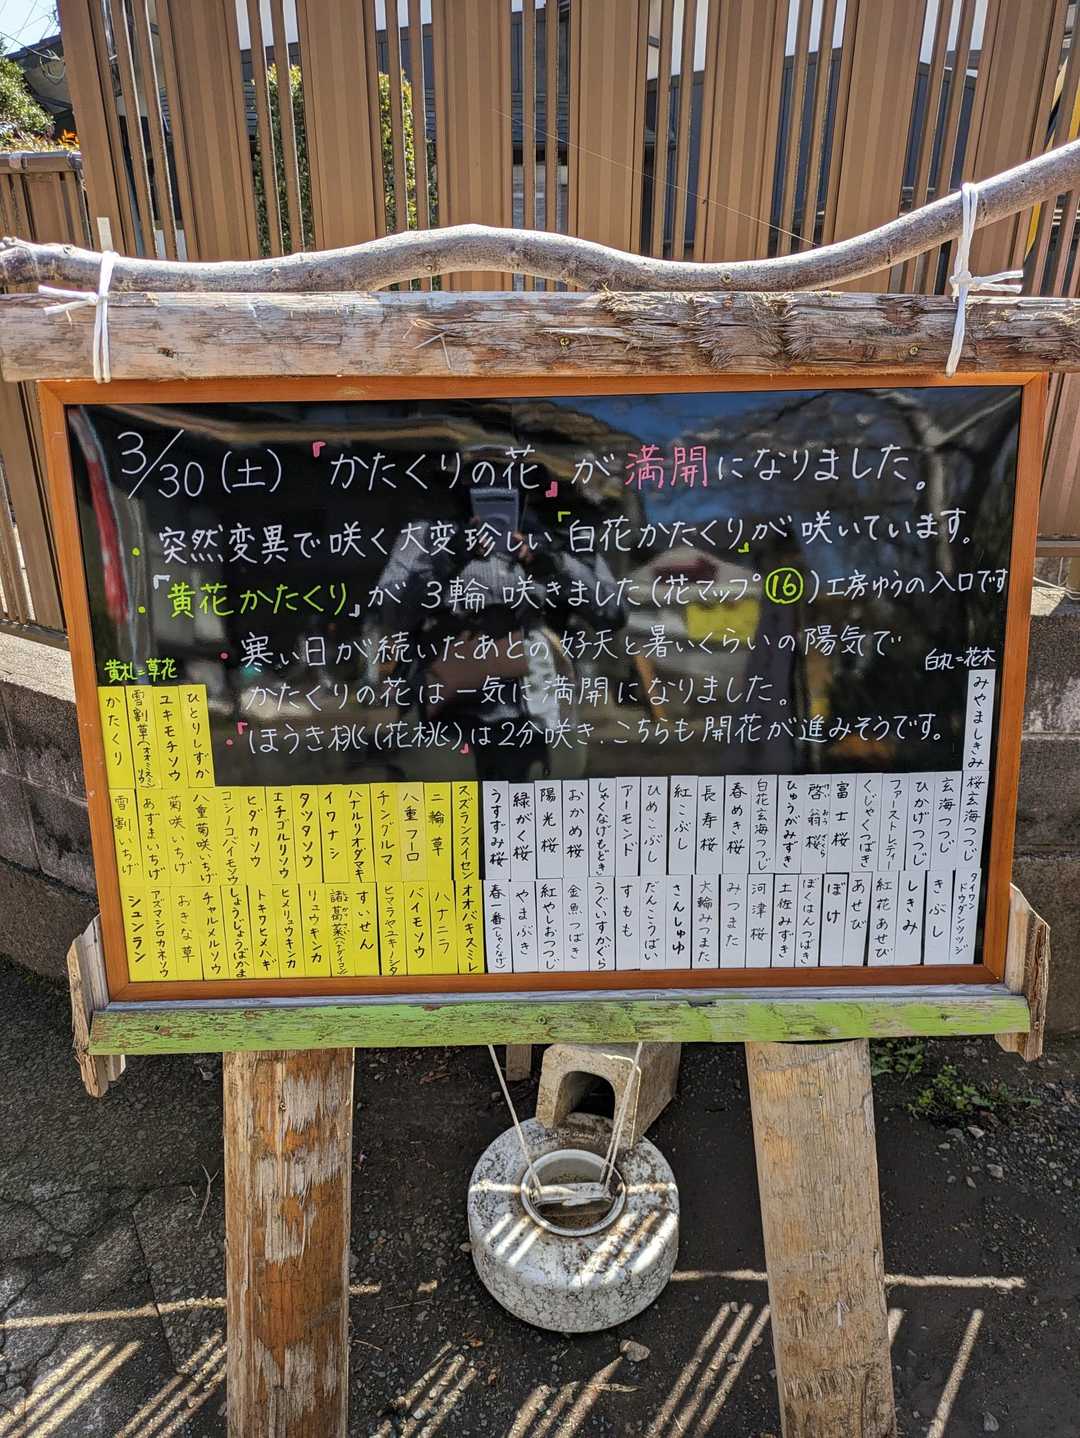 3/30(土)『かたくりの花』が満開になりました。
・突然変異で咲く大変珍しい『白花かたくり』が咲いています。
・『黄花かたくり』が3輪咲きました(花マップ⑯)工房ゆうの入口です
・寒い日が続いたあとの好天と暑いくらいの陽気で
かたくりの花は一気に満開になりました。
・『ほうき桃(花桃)』は2分咲き.こちらも開花が進みそうです。
黄札=草花
白丸=花木
かたくり
雪割草(オオミスミソウ)
ユキモチソウ
ひとりしずか
みやましきみ
雪割いちげ
あずまいちげ
菊咲いちげ
八重菊咲いちげ
コシノコバイモソウ
ヒダカソウ
エチゴルリソウ
タツタソウ
イワナシ
ハナルリオダマキ
チングルマ
八重フーロ
二輪草
スズランスイセン
うすずみ桜
緑がく桜
陽光桜
おかめ桜
しゃくなげもどき
アーモンド
ひめこぶし
紅こぶし
長寿桜
春めき桜
白花玄海つつじ
ひゅうがみずき
啓翁桜
富士桜
くじゃくつばき
ファーストレディー
ひかげつつじ
玄海つつじ
桜玄海つつじ
シュンラン
アズマシロカネソウ
おきな草
チャルメルソウ
しょうじょうばかま
トキワヒメハギ
ヒメリュウキンカ
リュウキンカ
諸葛菜(ハナダイコン)
すいせん
ヒマラヤユキノシタ
バイモソウ
ハナニラ
オオバキスミレ
春一番(しゃくなげ)
やまぶき
紅やしおつつじ
金魚つばき
うぐいすかぐら
すもも
だんこうばい
さんしゅゆ
大輪みつまた
みつまた
河津桜
土佐みずき
ぼくはんつばき
ぼけ
あせび
紅花あせび
しきみ
きぶし
タイワンドウダンツツジ